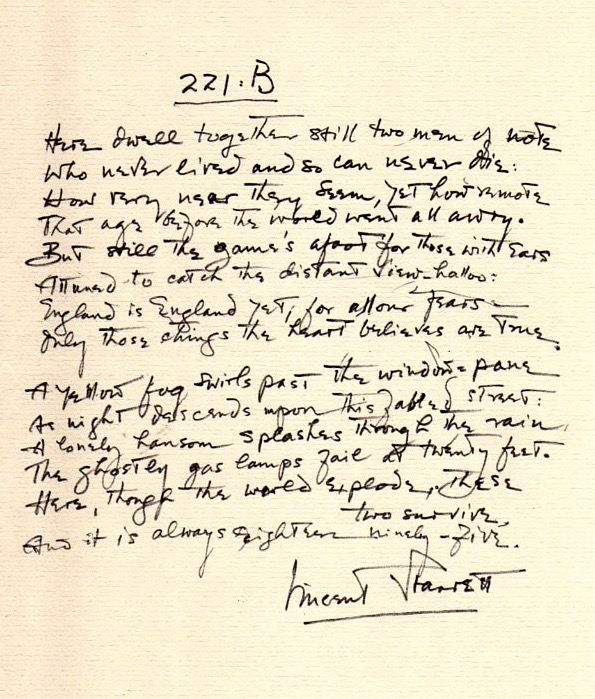 221.B
Here dwell together still two men of note
Who never lived and so can never die:
How very near they seem, yet how remote
That age before the world went all awry.
But still the game's afoot for those with ears
Attuned to catch the distant view-halloo:
England is England yet, for all our fears—
Only those things the heart believes are true.
A yellow fog swirls past the window-pane
As night descends upon this fabled street:
A lonely hansom splashes through the rain,
The ghostly gas lamps fail at twenty feet.
Here, though the world explode, these
two survive,
And it is always eighteen ninety-five.
Vincent Starrett